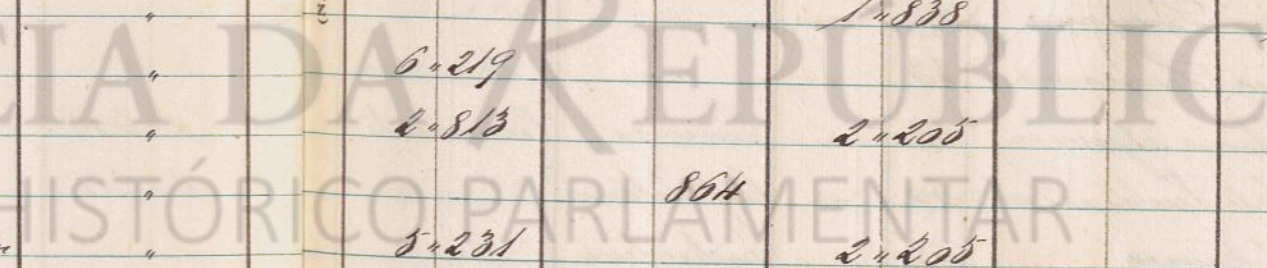 " 1"838
" 6"219
" 2"813 2"205
" 864
" 5"231 2"205
CIA DA REPÚBLIC
HISTÓRICO PARLAMENTAR